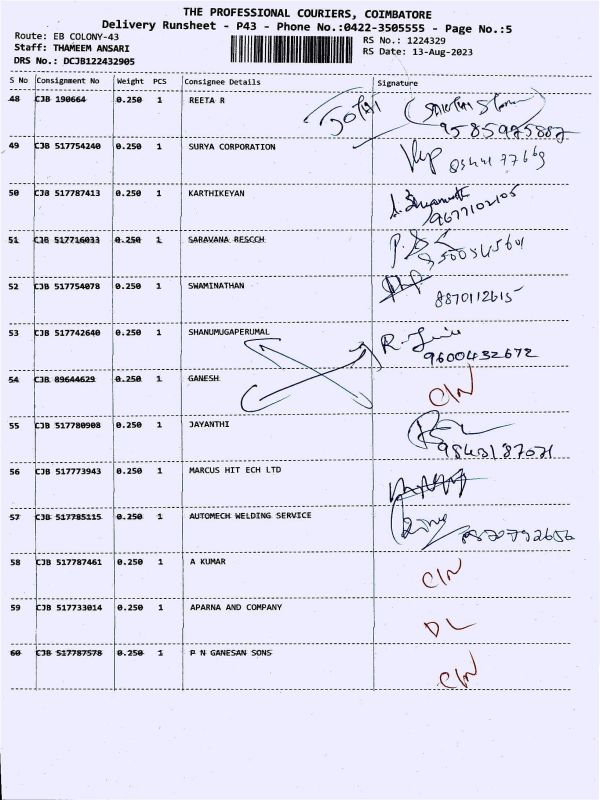 THE PROFESSIONAL COURIERS, COIMBATORE
Delivery Runsheet - P43 - Phone No.:0422-3505555 - Page No.:5
Route: EB COLONY-43
Staff: THAMEEM ANSARI
DRS No.: DCJB122432905
RS No.: 1224329
RS Date: 13-Aug-2023
S No Consignment No Weight PCS Consignee Details Signature
48 CJB 190664 0.250 1 REETA R
49 CJB 517754240 0.250 1 SURYA CORPORATION
50 CJB 517787413 0.250 1 KARTHIKEYAN
9677102105
51 CJB 517716033 0.250 1 SARAVANA RESCCH
52 CJB 517754078 0.250 1 SWAMINATHAN
8870112615
53 CJB 517742640 0.250 1 SHANUMUGAPERUMAL
9600432672
54 CJB 89644629 0.250 1 GANESH
C/N
55 CJB 517780908 0.250 1 JAYANTHI
9843187071
56 CJB 517773943 0.250 1 MARCUS HIT ECH LTD
57 CJB 517785115 0.250 1 AUTOMECH WELDING SERVICE
58 CJB 517787461 0.250 1 A KUMAR
C/N
59 CJB 517733014 0.250 1 APARNA AND COMPANY
DL
60 CJB 517787578 0.250 1 P N GANESAN SONS
C/N